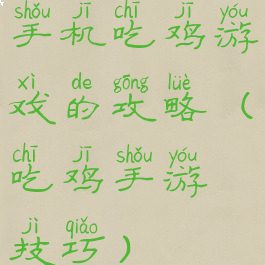 shǒu jī chī jī yóu
手机吃鸡游
xì de gōng lüè
戏的攻略（
chī jī shǒu yóu
吃鸡手游
jì qiǎo
技巧）